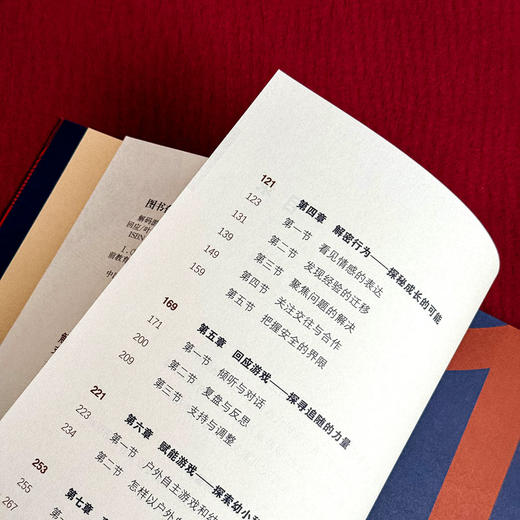 图书在
解码游
回应/叶
ISBN
中国
121 第四章 解密行为——探秘成长的可能
123 第一节 看见情感的表达
131 第二节 发现经验的迁移
139 第三节 聚焦问题的解决
149 第四节 关注交往与合作
159 第五节 把握安全的界限
169 第五章 回应游戏——探寻追随的力量
171 第一节 倾听与对话
200 第二节 复盘与反思
209 第三节 支持与调整
221 第六章 赋能游戏——探索幼小
223 第一节 户外自主游戏和幼
234 第二节 怎样以户外
253 第七章
255
267